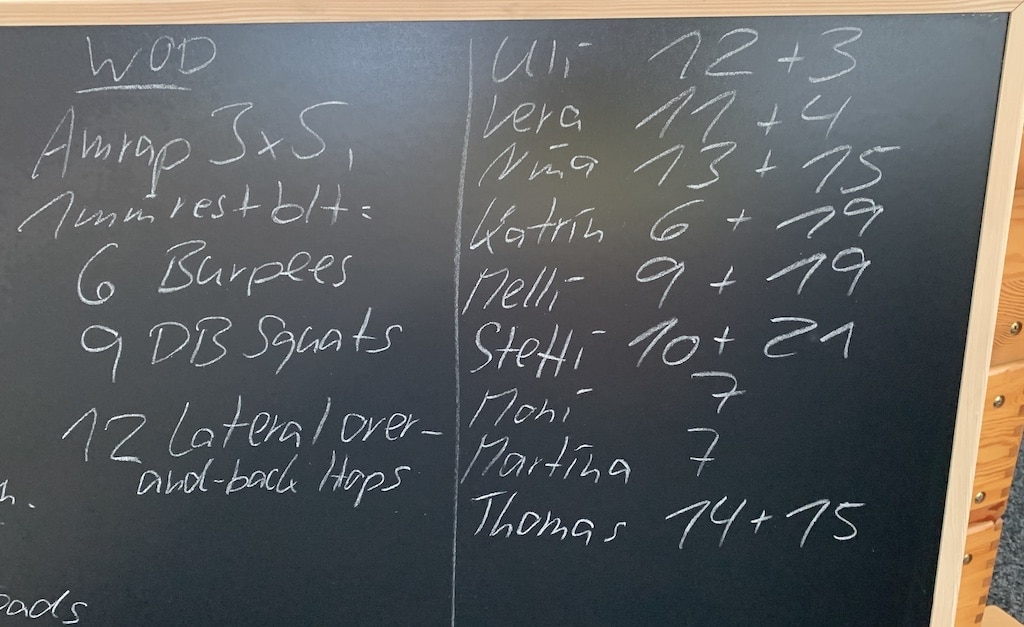 WOD
Amrap 3x5,
1min rest btt:
6 Burpees
9 DB Squats
12 Lateral over-
and-back Hops
h.
oads
Uli 12 + 3
Vera 11 + 4
Nina 13 + 15
Katrin 6 + 19
Melli 9 + 19
Steffi 10 + 21
Moni 7
Martina 7
Thomas 14 + 15